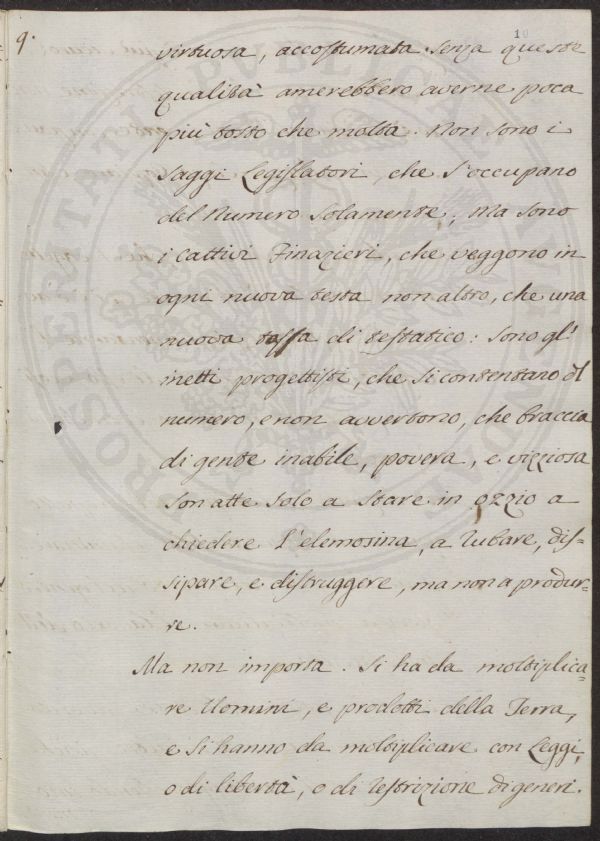 9.
10
virtuosa, accostumata senza queste
qualità amerebbero averne poca
più tosto che molta. Non sono i
saggi Legislatori, che s'occupano
del Numero solamente; Ma sono
i Cattivi Finazieri, che veggono in
ogni nuova testa non altro, che una
nuova tassa di testatico: sono gl'
inetti progettisti, che si contentano del
numero, e non avvertono, che braccia
di gente inabile, povera, e vizziosa
son atte solo a stare in ozzio a
chiedere l'elemosina, a rubare, dis=
sipare, e distruggere, ma non a produr=
re.
Ma non importa. Si ha da moltiplica=
re Uomini, e prodotti della Terra,
e si hanno da moltiplicare con Leggi,
o di libertà, o di restrizione di generi.
PROSPERITATI PUBLICAE AUGENDAE